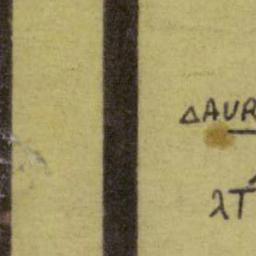 ΔAUR
λT